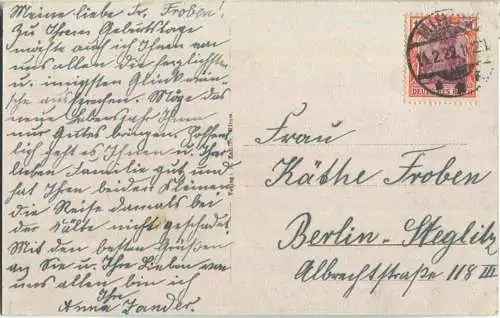 Meine liebe Fr. Froben!
Zu Ihrem Geburtstage
möchte auch ich Ihnen von
uns allen die herzlichsten
u. innigsten Glückwün-
sche aussprechen. Möge das
neue Lebensjahr Ihnen
nur Gutes bringen. Hoffent-
lich geht es Ihnen u. Ihrer
lieben Familie gut, und
hat Ihren beiden Kleinen
die Reise damals bei
der Kälte nicht geschadet.
Mit den besten Grüßen
an Sie u. Ihre Lieben von
uns allen bin ich
Ihre
Anna Zander.
Frau
Käthe Froben
Berlin-Steglitz
Albrechtstraße 118 III